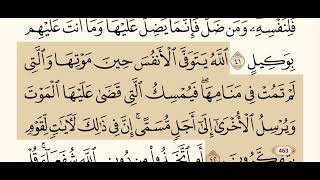 فَلِنَفْسِهِۦ ۖ وَمَن ضَلَّ فَإِنَّمَا يَضِلُّ عَلَيْهَا ۖ وَمَآ أَنتَ عَلَيْهِم
بِوَكِيلٍ ٤١ ٱللَّهُ يَتَوَفَّى ٱلْأَنفُسَ حِينَ مَوْتِهَا وَٱلَّتِى
لَمْ تَمُتْ فِى مَنَامِهَا ۖ فَيُمْسِكُ ٱلَّتِى قَضَىٰ عَلَيْهَا ٱلْمَوْتَ
وَيُرْسِلُ ٱلْأُخْرَىٰٓ إِلَىٰٓ أَجَلٍ مُّسَمًّى ۚ إِنَّ فِى ذَٰلِكَ لَـَٔايَـٰتٍ لِّقَوْمٍ
463
يَتَفَكَّرُونَ ٤٢ أَمِ ٱتَّخَذُوا۟ مِن دُونِ ٱللَّهِ شُفَعَآءَ ۚ قُلْ